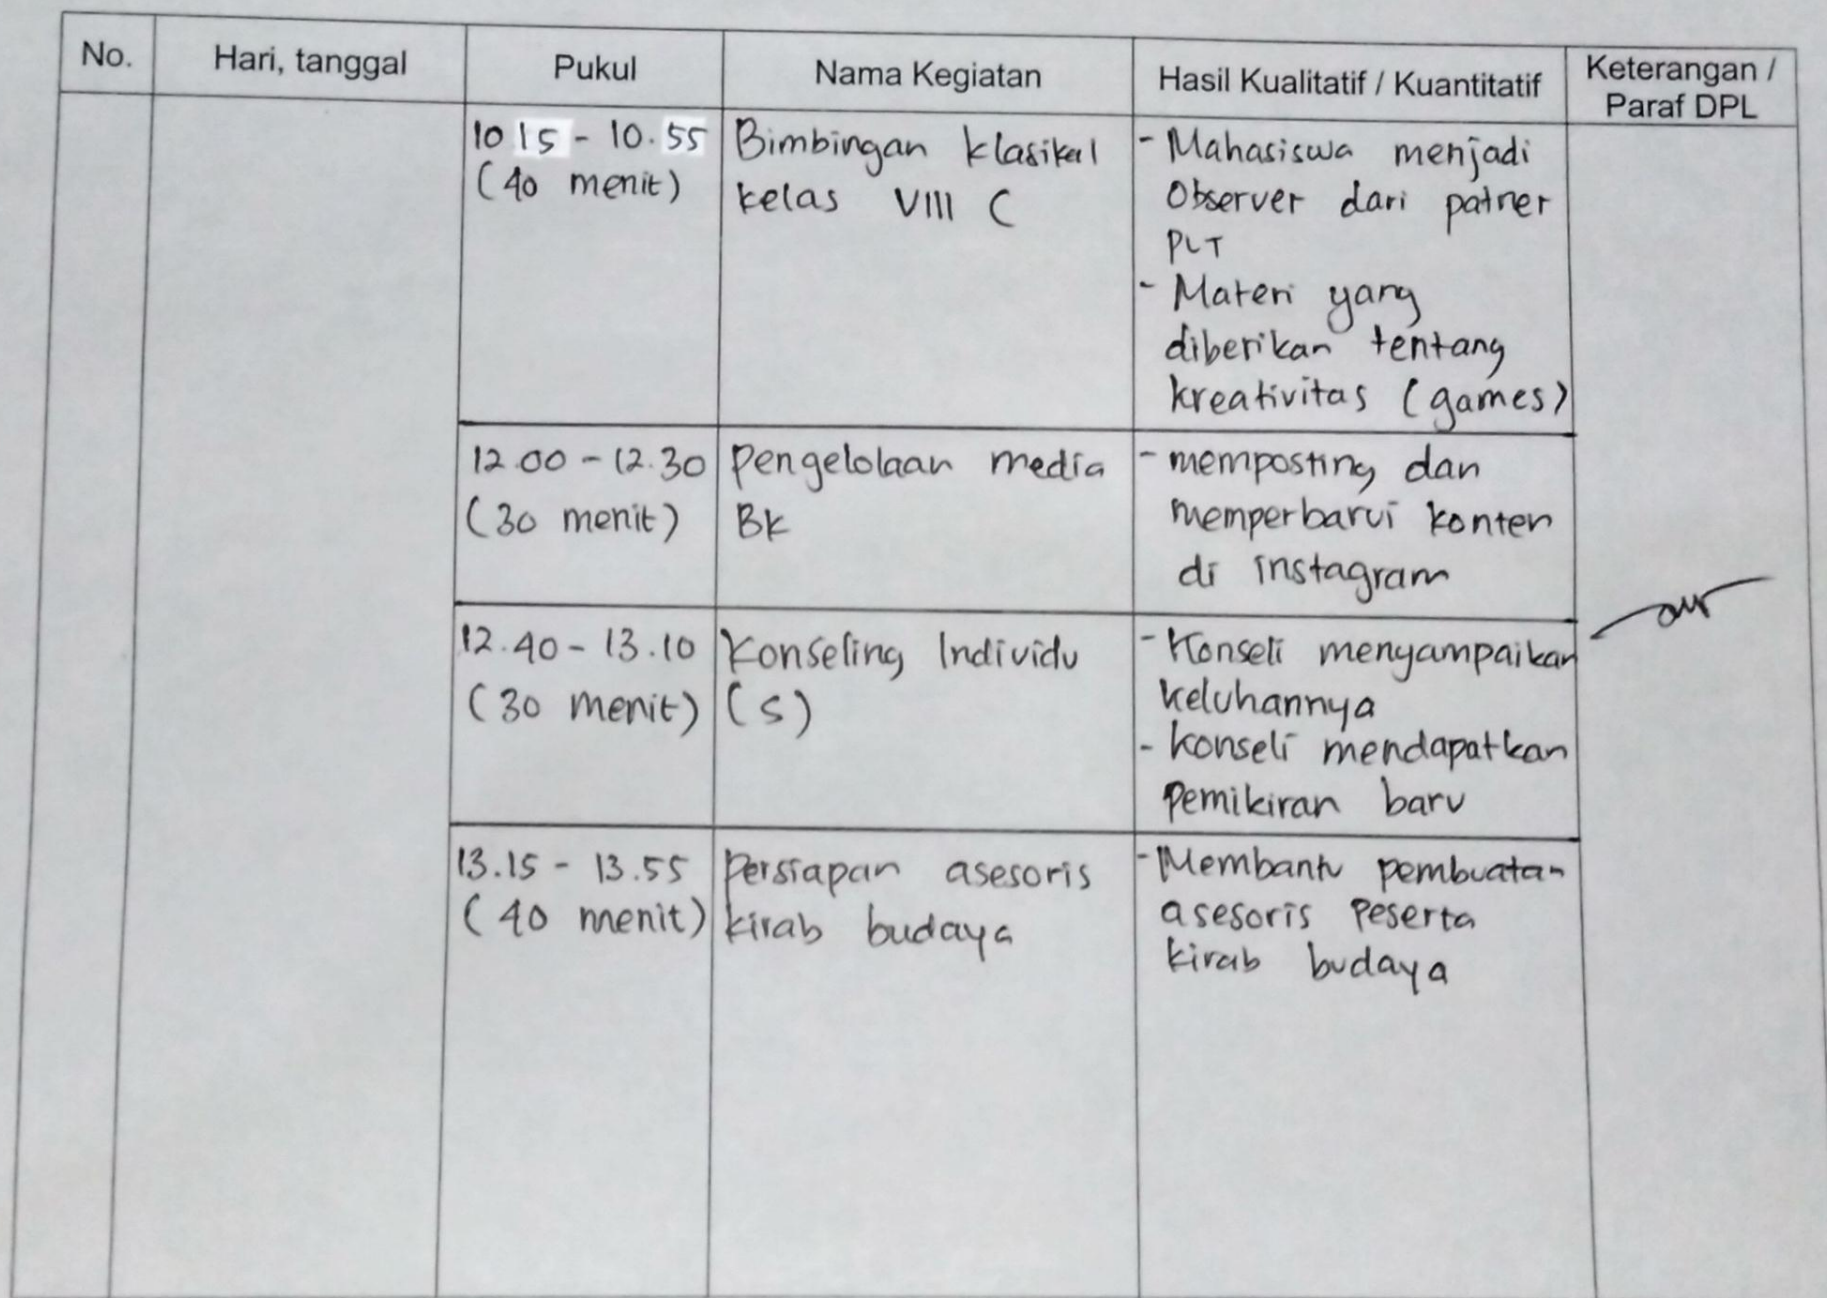 No. Hari, tanggal Pukul Nama Kegiatan Hasil Kualitatif / Kuantitatif Keterangan / Paraf DPL
10 15 - 10.55
(40 menit)
Bimbingan klasikal
kelas VIII C
- Mahasiswa menjadi
Observer dari patner
PLT
- Materi yang
diberikan tentang
kreativitas (games)
12.00 - 12.30
(30 menit)
Pengelolaan media
BK
- memposting dan
memperbarui konten
di instagram
12.40 - 13.10
(30 menit)
Konseling Individu
(S)
- Konseli menyampaikan
keluhannya
- konseli mendapatkan
pemikiran baru
13.15 - 13.55
(40 menit)
Persiapan asesoris
kirab budaya
- Membantu pembuatan
asesoris peserta
kirab budaya